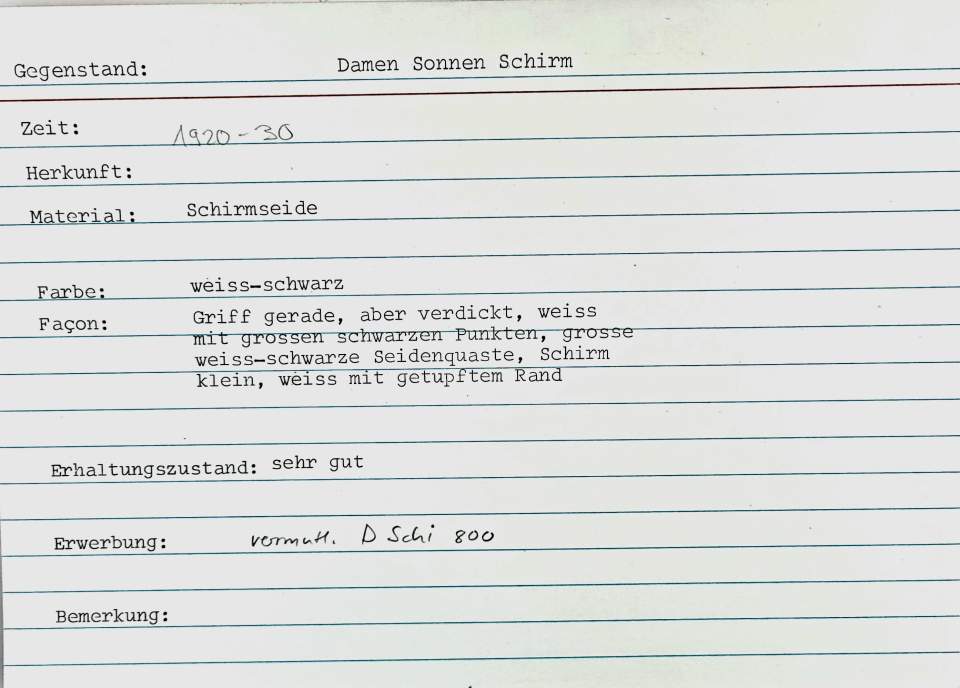 Gegenstand: Damen Sonnen Schirm
Zeit: 1920-30
Herkunft:
Material: Schirmseide
Farbe: weiss-schwarz
Façon: Griff gerade, aber verdickt, weiss
mit grossen schwarzen Punkten, grosse
weiss-schwarze Seidenquaste, Schirm
klein, weiss mit getupftem Rand
Erhaltungszustand: sehr gut
Erwerbung: vermutl. D Schi 800
Bemerkung: